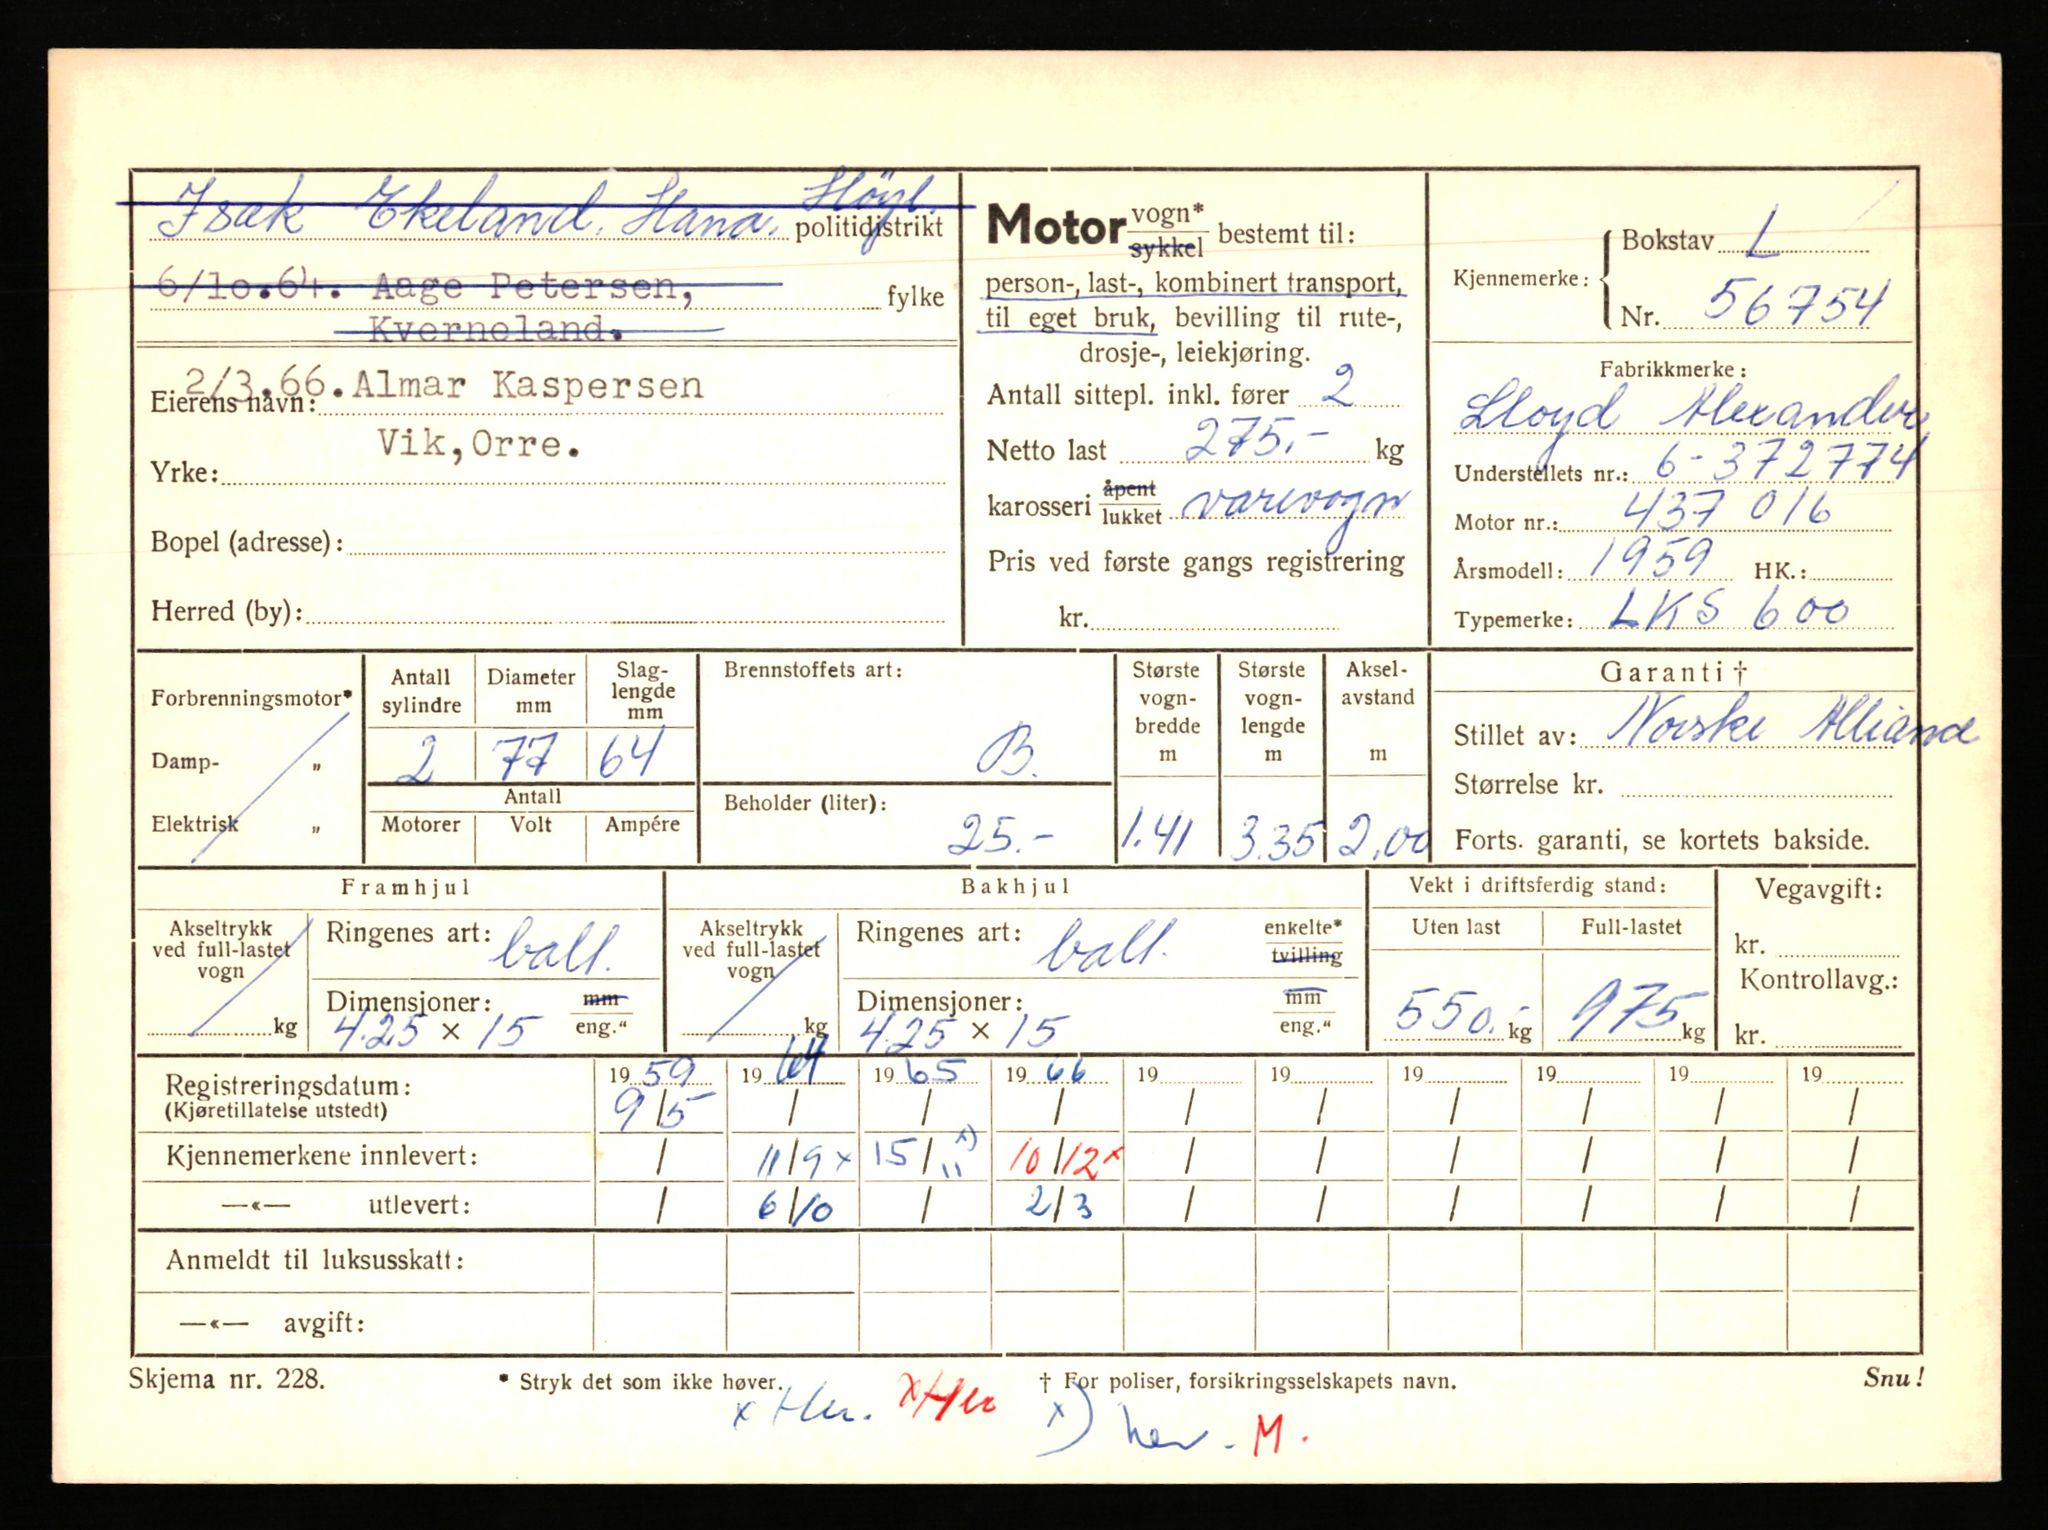 Isak Ekeland, Hana, Høyl. politidistrikt
6/10.64. Aage Petersen, fylke
Kverneland.
2/3.66. Almar Kaspersen
Eierens navn:
Vik, Orre.
Yrke:
Bopel (adresse):
Herred (by):
Motor vogn* sykkel bestemt til:
person-, last-, kombinert transport,
til eget bruk, bevilling til rute-,
drosje-, leiekjøring.
Antall sittepl. inkl. fører 2
Netto last 275.- kg
karosseri åpent lukket varevogn
Pris ved første gangs registrering
kr.
Kjennemerke: Bokstav L
Nr. 56754
Fabrikkmerke:
Lloyd Alexander
Understellets nr.: 6-372774
Motor nr.: 437 016
Årsmodell: 1959 HK.:
Typemerke: LKS 600
Forbrenningsmotor*
Damp- „
Elektrisk „
Antall sylindre Diameter mm Slag-lengde mm
2 77 64
Antall
Motorer Volt Ampére
Brennstoffets art:
B.
Beholder (liter):
25.-
Største vogn-bredde m Største vogn-lengde m Aksel-avstand m
1.41 3.35 2.00
Garanti †
Stillet av: Norske Alliance
Størrelse kr.
Forts. garanti, se kortets bakside.
Framhjul
Akseltrykk ved full-lastet vogn
kg
Ringenes art: ball.
Dimensjoner: mm eng."
4.25 × 15
Bakhjul
Akseltrykk ved full-lastet vogn
kg
Ringenes art: ball. enkelte* tvilling
Dimensjoner: mm eng."
4.25 × 15
Vekt i driftsferdig stand:
Uten last Full-lastet
550.- kg 975 kg
Vegavgift:
kr.
Kontrollavg.:
kr.
Registreringsdatum: 19 59 19 64 19 65 19 66 19 19 19 19 19 19
(Kjøretillatelse utstedt) 9/5 / / / / / / / / /
Kjennemerkene innlevert: / 11/9 x 15/11 x) 10/12 x / / / / / /
—«— utlevert: / 6/10 / 2/3 / / / / / /
Anmeldt til luksusskatt:
—«— avgift:
Skjema nr. 228. * Stryk det som ikke høver. † For poliser, forsikringsselskapets navn. Snu!
x Her. x Her x) her - M.